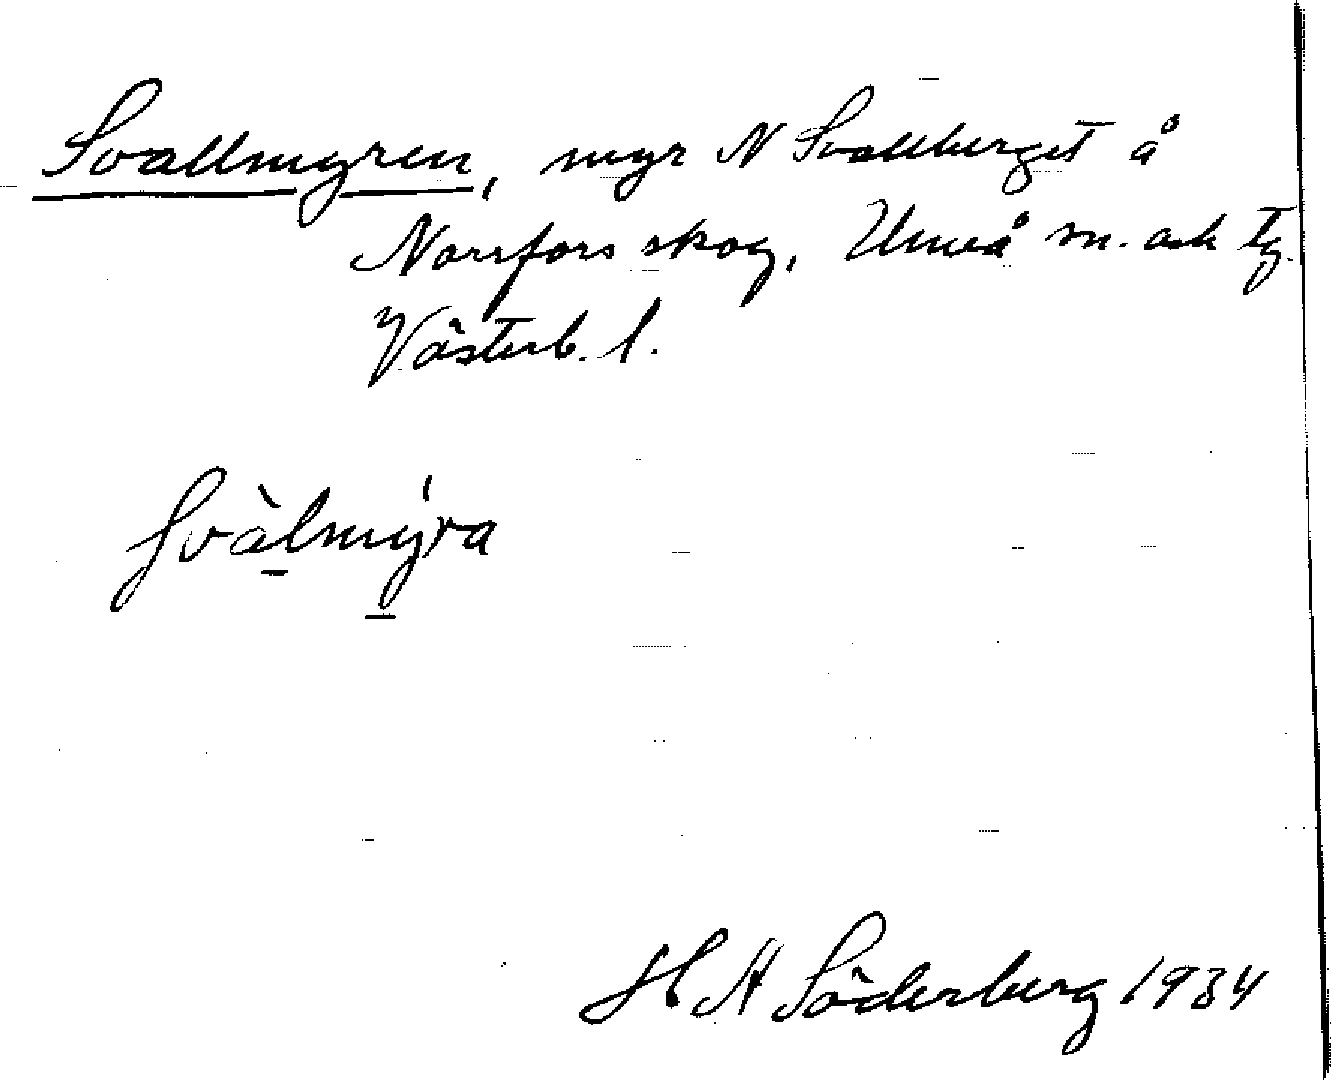 Svallmyren, myr N Svallberget å
Norrfors skog, Umeå sn. och tg.
Västerb. l.
Svàlmýra
H A Söderberg 1934